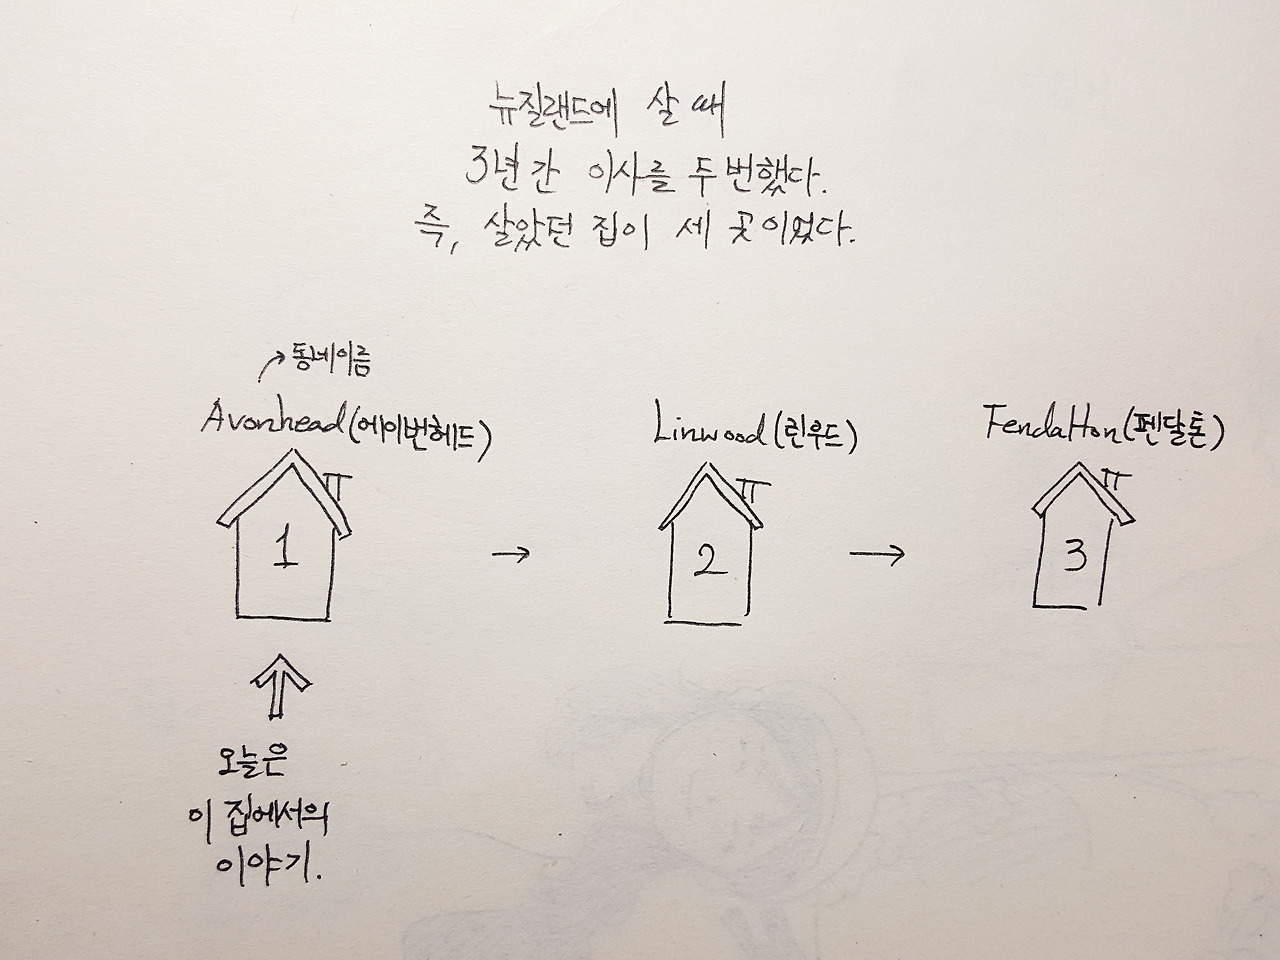 뉴질랜드에 살 때
3년간 이사를 두 번했다.
즉, 살았던 집이 세 곳이었다.
동네이름
Avonhead(에이번헤드)
Linwood(린우드)
Fendalton(펜달톤)
1
2
3
오늘은
이 집에서의
이야기.